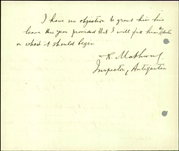 I have no objection to grant him
leave this year provided that I will find
when it should begin
Inspector of Antiquities